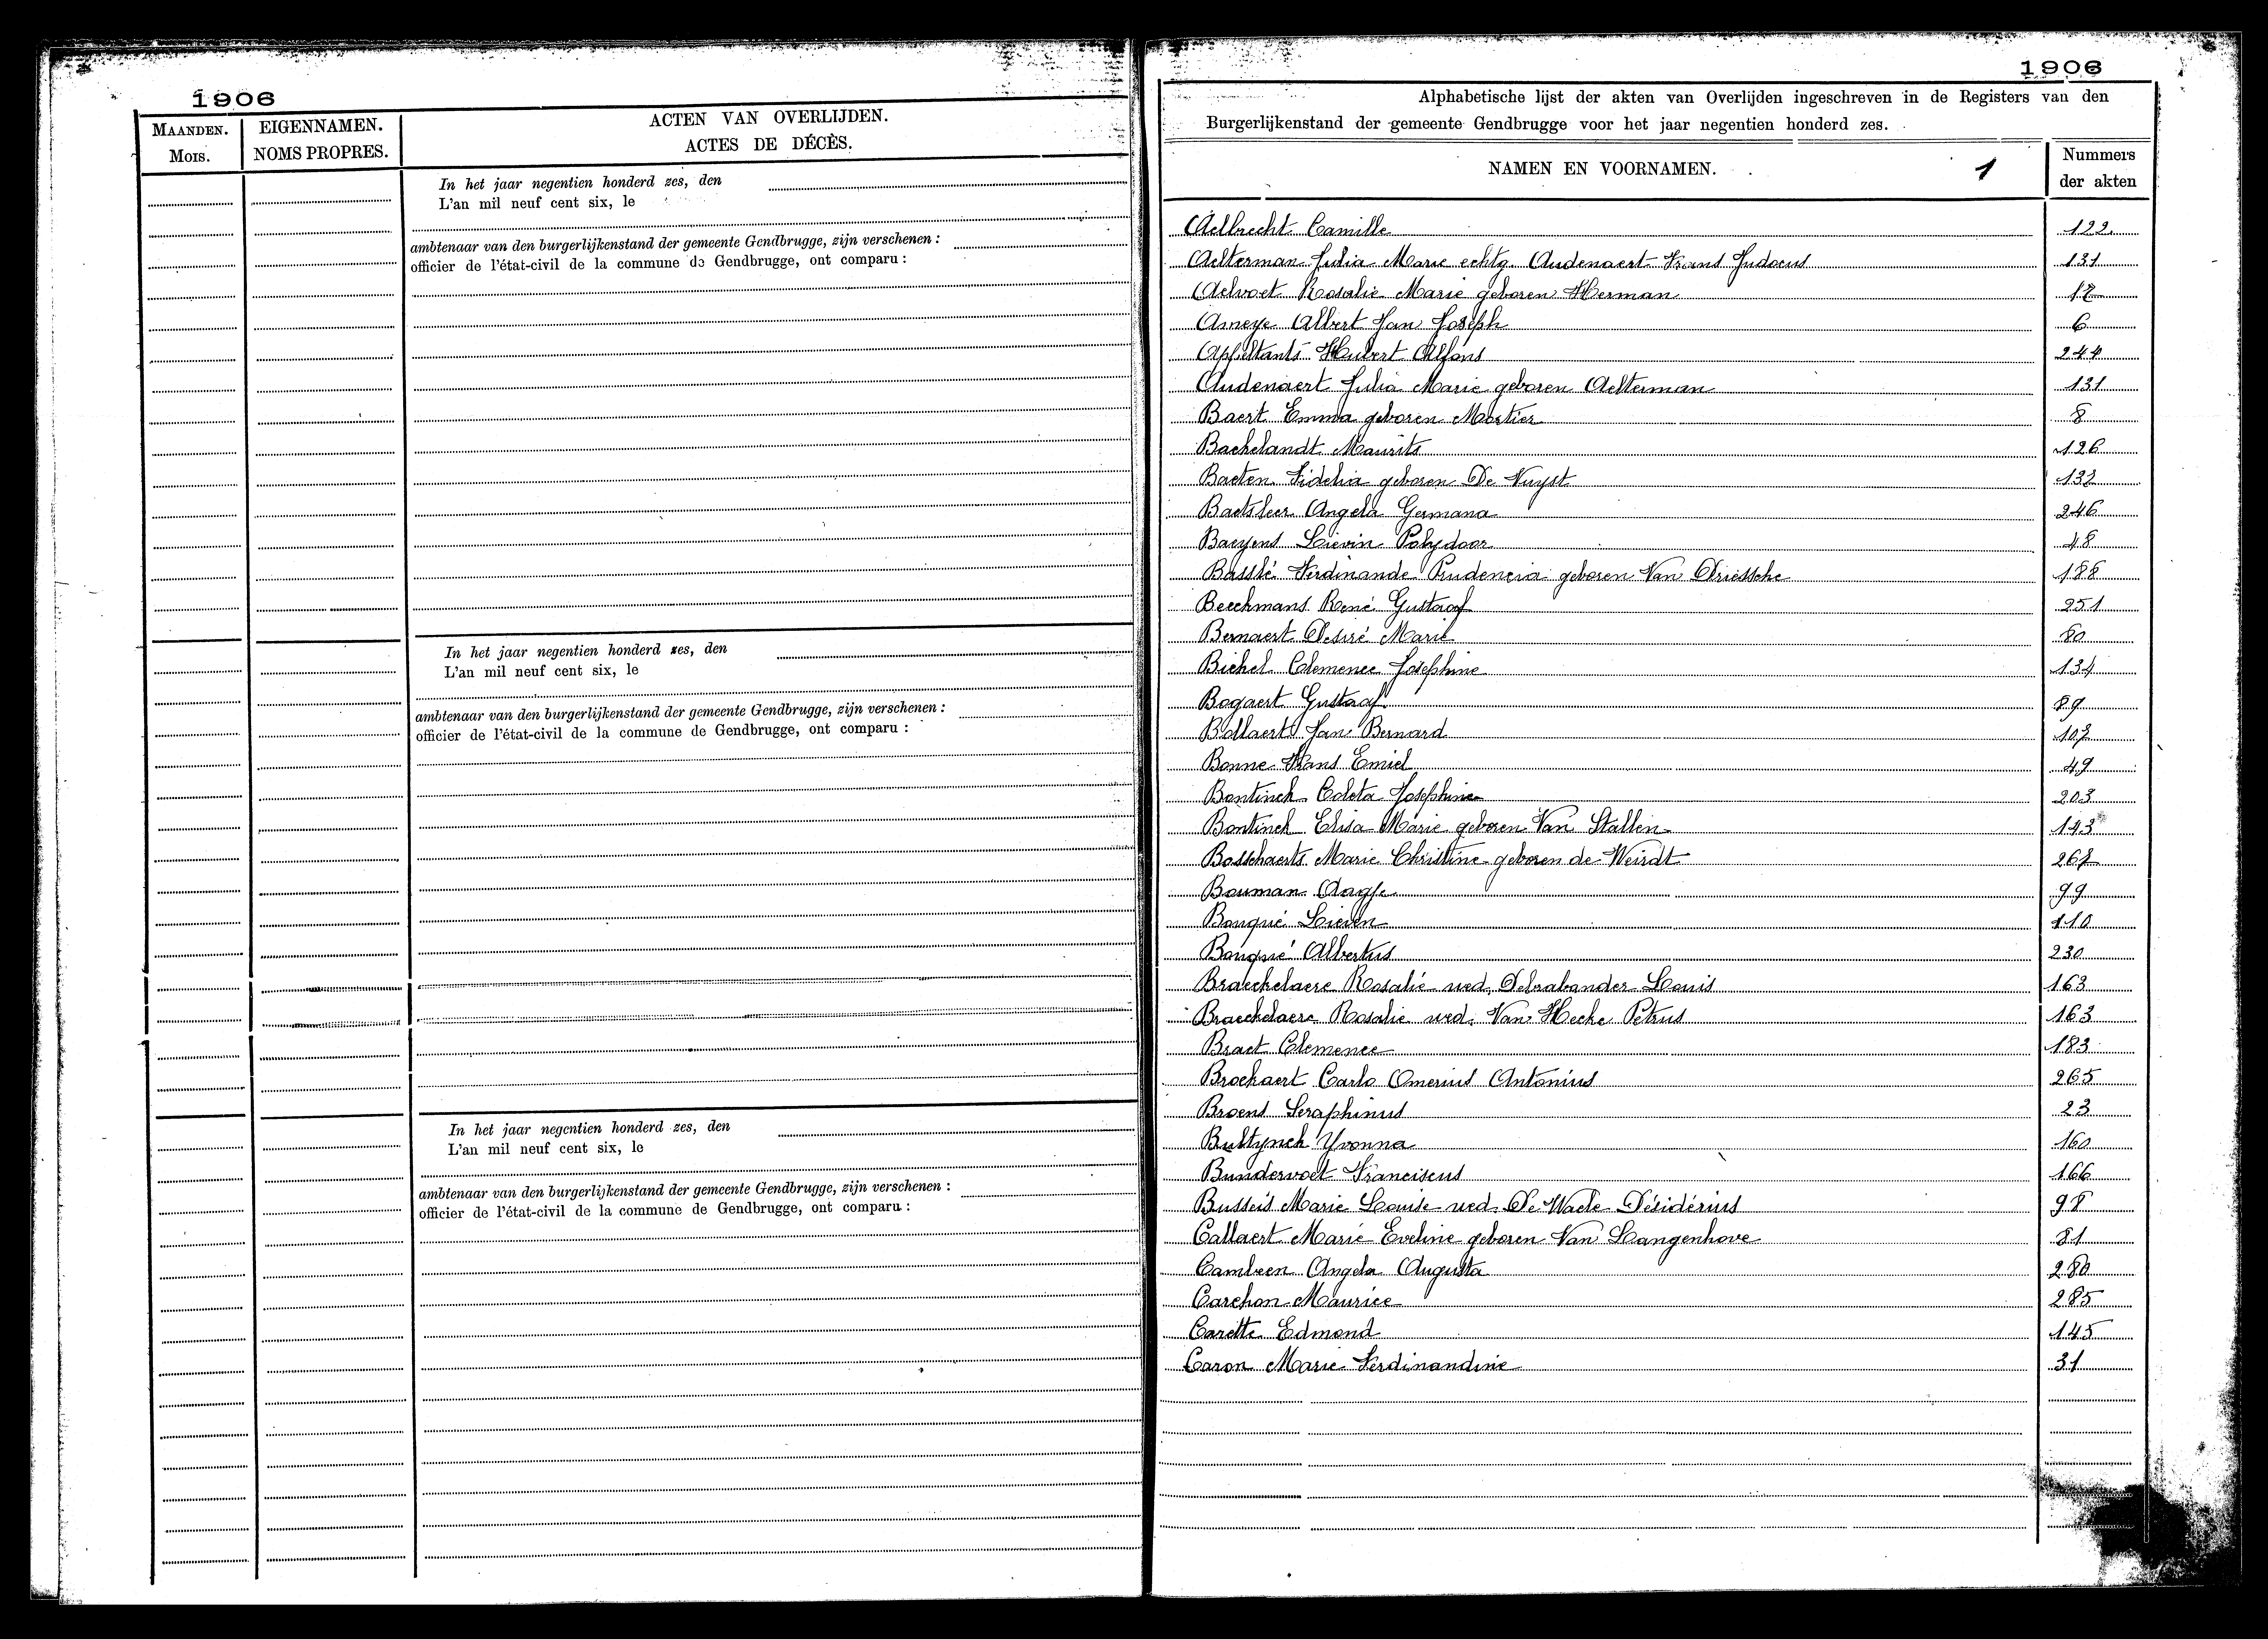 1906
MAANDEN.
MOIS.
EIGENNAMEN.
NOMS PROPRES.
ACTEN VAN OVERLIJDEN.
ACTES DE DÉCÈS.
In het jaar negentien honderd zes, den
L'an mil neuf cent six, le
ambtenaar van den burgerlijkenstand der gemeente Gendbrugge, zijn verschenen :
officier de l'état-civil de la commune de Gendbrugge, ont comparu :
In het jaar negentien honderd zes, den
L'an mil neuf cent six, le
ambtenaar van den burgerlijkenstand der gemeente Gendbrugge, zijn verschenen :
officier de l'état-civil de la commune de Gendbrugge, ont comparu :
In het jaar negentien honderd zes, den
L'an mil neuf cent six, le
ambtenaar van den burgerlijkenstand der gemeente Gendbrugge, zijn verschenen :
officier de l'état-civil de la commune de Gendbrugge, ont comparu :
1906
Alphabetische lijst der akten van Overlijden ingeschreven in de Registers van den
Burgerlijkenstand der gemeente Gendbrugge voor het jaar negentien honderd zes.
NAMEN EN VOORNAMEN. 1
Nummers
der akten
Aelbrecht Camille 122
Aelterman Julia Marie echtg. Audenaert Frans Judocus 131
Aelvoet Rosalie Marie geboren Herman 17
Ameye Albert Jan Joseph 6
Hubert Alfons 244
Audenaert Julia Marie geboren Aelterman 131
Baert Emma geboren Mortier 8
Baekelandt Maurits 126
Baeten Fidelia geboren De Nuyst 137
Baetsleer Angela Germana 246
Baeyens Lievin Polydoor 48
Basslé Ferdinande Prudencia geboren Van Driessche 188
Beeckmans René Gustaaf 251
Bernaert Desiré Marie 80
Bichel Clemence Josephine 134
Bogaert Gustaaf 89
Bollaert Jan Bernard 107
Bonne Frans Emiel 49
Bontinck Coleta Josephine 203
Bontinck Elisa Marie geboren Van Stallen 143
Bosschaerts Marie Christine geboren de Weirdt 267
Bouman 99
Bouqué Lieven 110
Bouqué Albertus 230
Braeckelaere Rosalie wed. Debrabander Louis 163
Braeckelaere Rosalie wed. Van Hecke Petrus 163
Braet Clemence 183
Brockaert Carlo Omerius Antonius 265
Broens Seraphinus 23
Bultynck Yvonna 160
Bundervoet Franciscus 166
Busseis Marie Louise wed. De Waele Désidérius 98
Callaert Marie Eveline geboren Van Langenhove 81
Cambeen Angela Augusta 280
Carchon Maurice 285
Carette Edmond 145
Caron Marie Ferdinandine 31